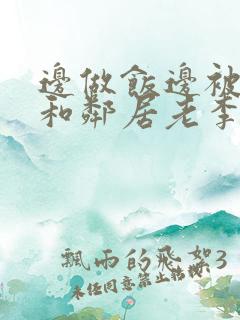 邊做飯邊被
和鄰居老李
飄雨的飛絮3
未經同意禁止轉載